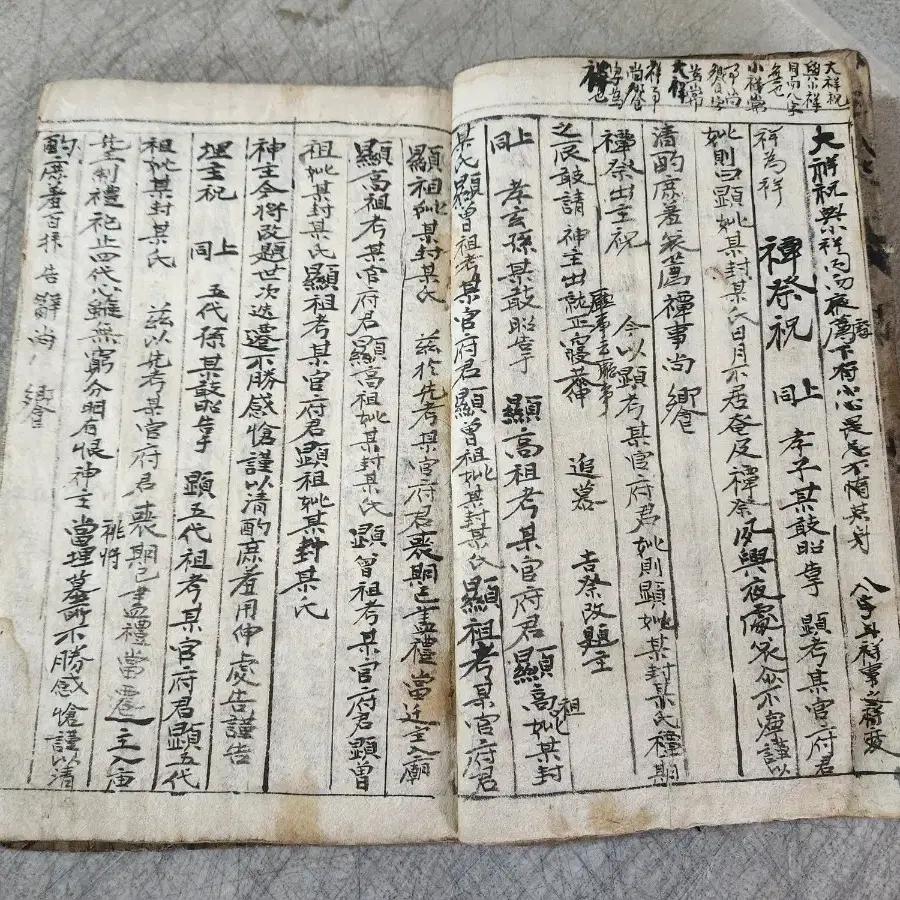 大祥祝
與小祥
目而八字
無也
小祥常
事尚
饗日字
若常
大祥
祥事
尚饗
字為
禫也
大祥祝與小祥同而夜薦下有小心畏忌不惰其身
八字且祥事之
祥為祥
禫祭祝 上同 孝子某敢昭告于 顯考某官府君
妣則曰顯妣某封某氏日月不居奄及禫祭夙興夜處哀慕不寧謹以
清酌庶羞哀薦禫事尚饗
禫祭出主祝 今以顯考某官府君妣則顯妣某封某氏禫期
之辰敢請 神主出就正寢恭伸 追慕 吉祭改題主
廳事云廳事
上同 孝玄孫某敢昭告于 顯高祖考某官府君 顯高祖妣某封
某氏 顯曾祖考某官府君 顯曾祖妣某封某氏 顯祖考某官府君
顯祖妣某封某氏 茲於先考某官府君喪期已盡禮當遷主入廟
顯高祖考某官府君 顯高祖妣某封某氏 顯曾祖考某官府君 顯曾
祖妣某封某氏 顯祖考某官府君 顯祖妣某封某氏
神主今將改題世次迭遷不勝感愴謹以清酌庶羞用伸虔告謹告
埋主祝 上同 五代孫某敢昭告于 顯五代祖考某官府君 顯五代
祖妣某封某氏 茲以先考某官府君喪期已盡禮當遷主入廟
祧將
先王制禮祀止四代心雖無窮分則有限神主當埋墓所不勝感愴謹以清
酌庶羞百拜告辭尚饗